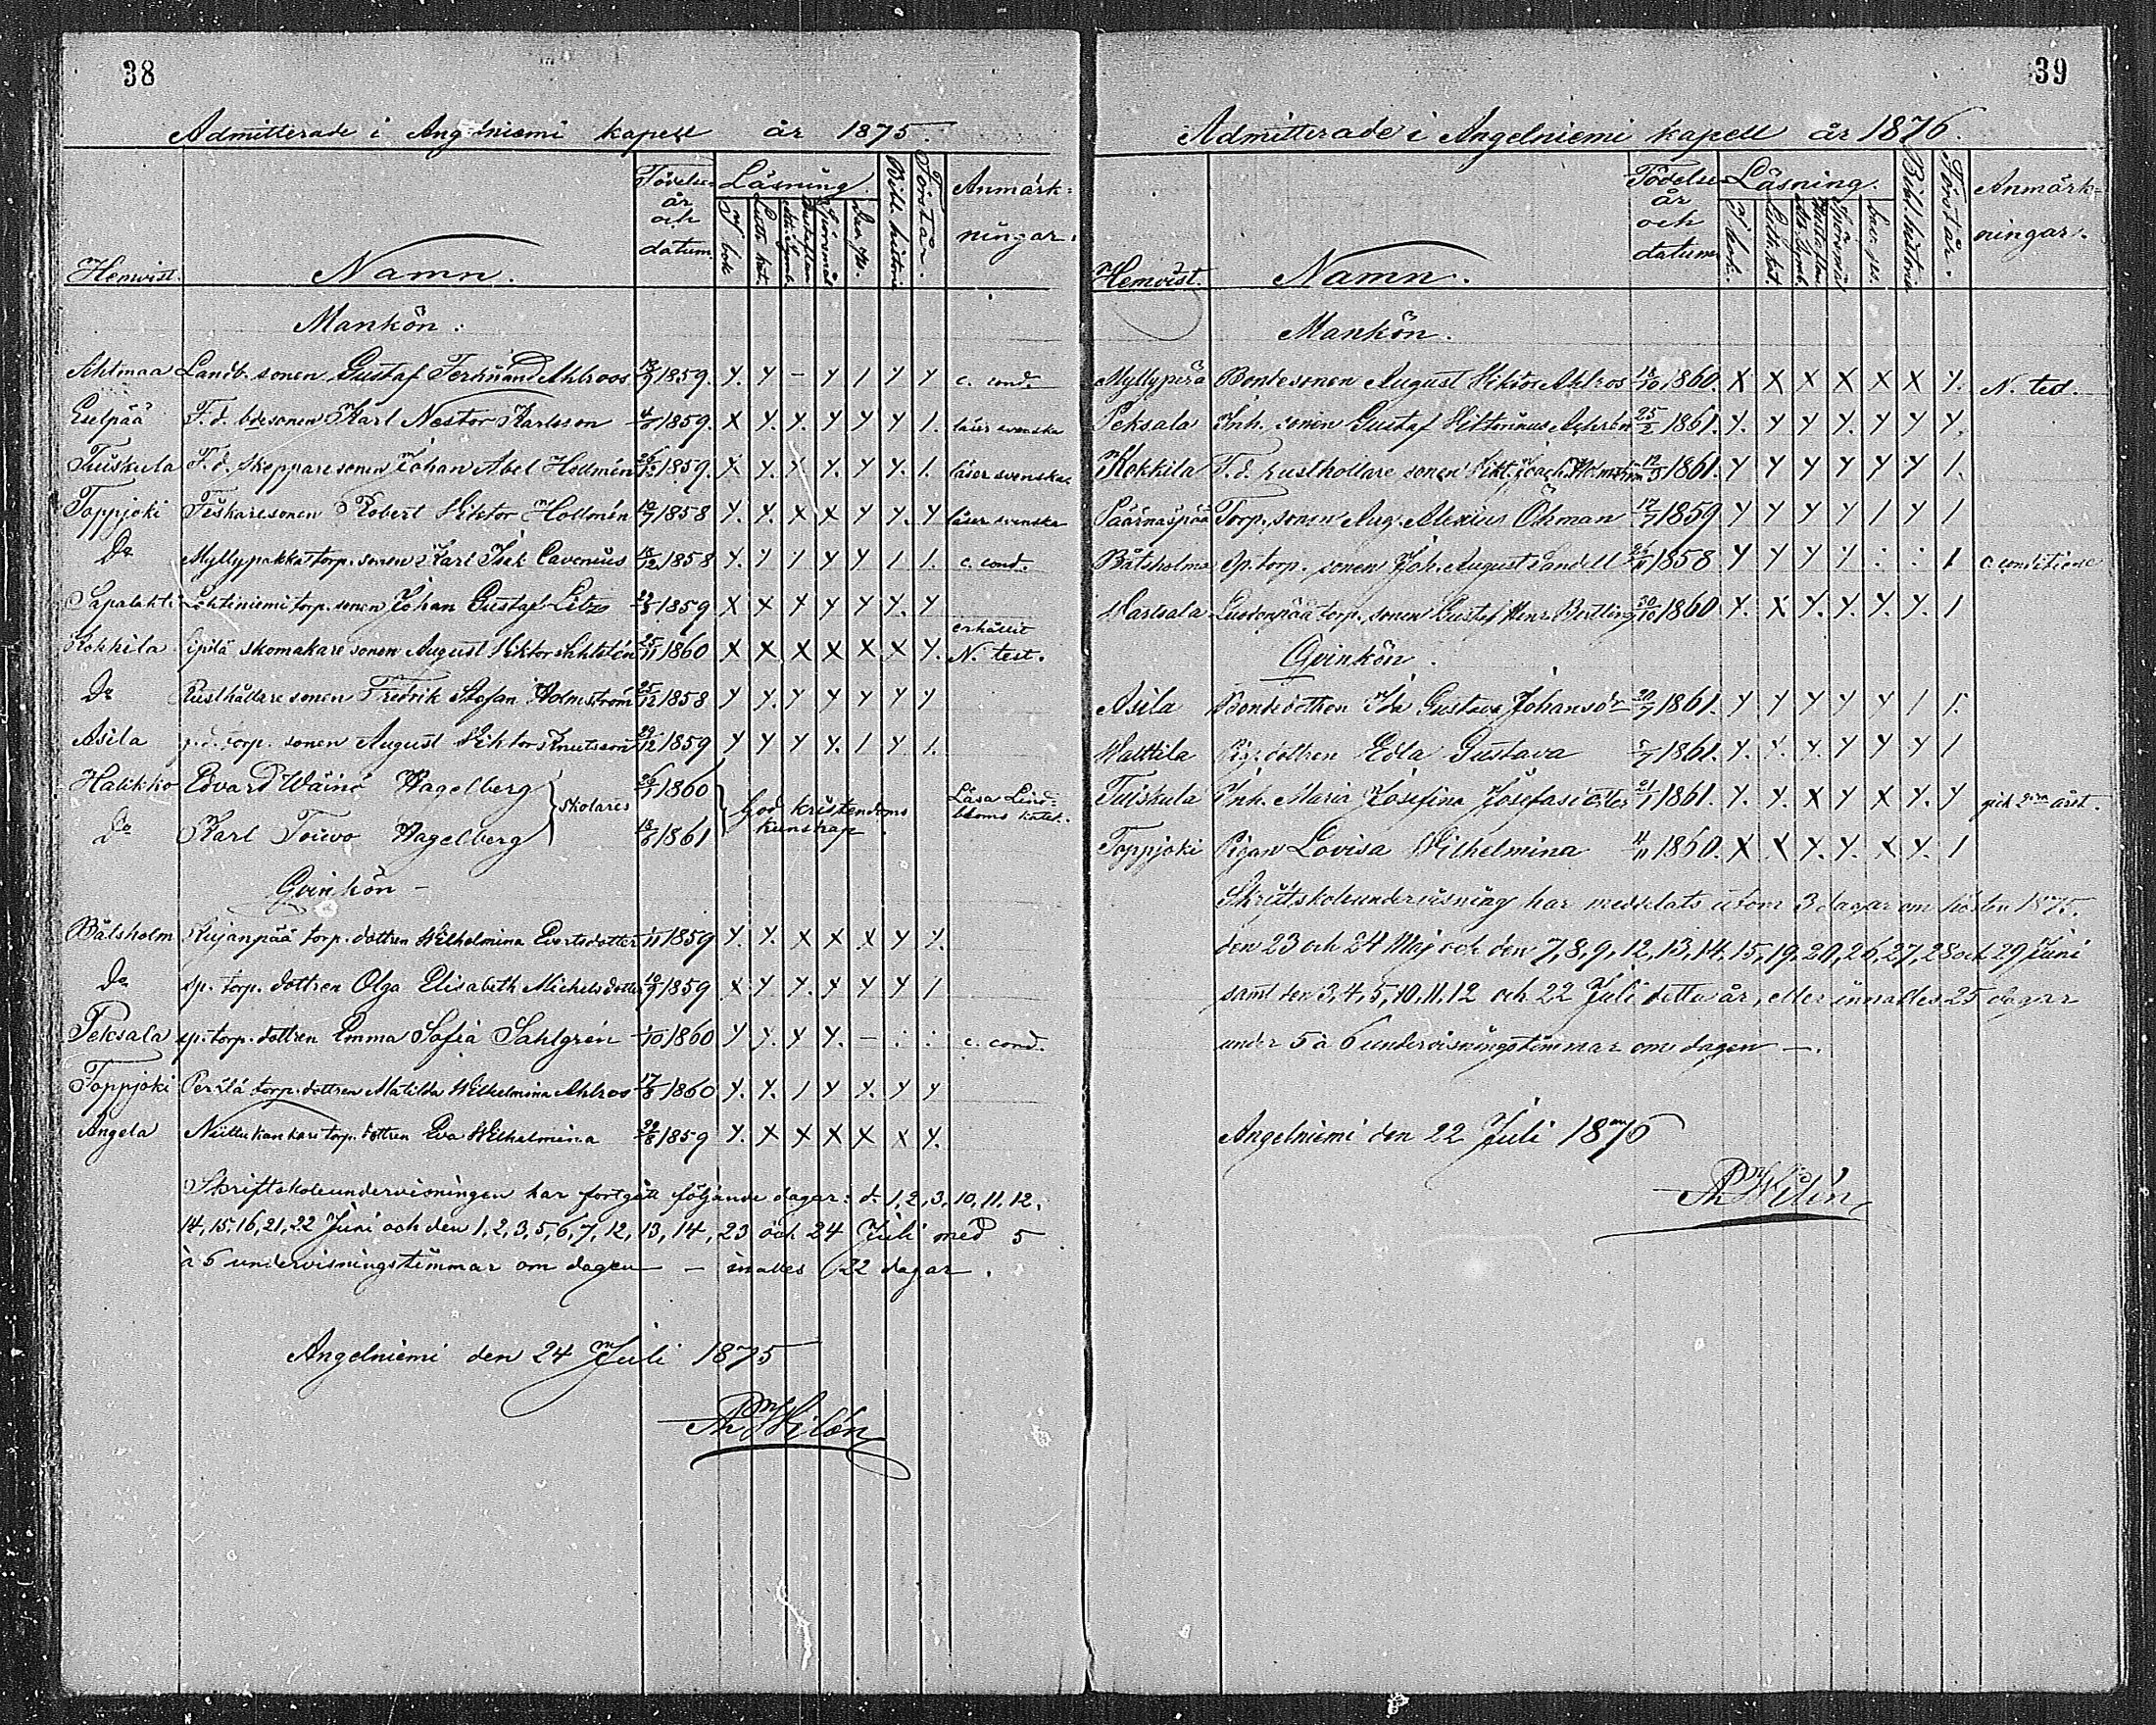 38
Admitterade i Angelniemi kapell år 1875.
Hemvist. Namn. Födelse år och datum Läsning I bok Luth. kat. Hustaflan Spörsmål Bibl. historia Förstår. Anmärkningar.
Mankön:
Landb. sonen Gustaf Ferdinand Ahlroos 1859. y. y – y / y y c. cond.
F. d. bdesonen Karl Nestor Karlsson 1859. x y. y. y y y 1. läser svenska
Tuiskula F. d. skepparesonen Johan Abel Hollmén 1859. x y. y. y. y. y. 1. läser svenska
Toppjoki Fiskaresonen Robert Viktor Hollmén 1858 y. y. x x y y. y läser svenska
Do Myllypakka torp. sonen Karl Isak Cavenius 18/12 1858 y. y 1 y y 1 1. c. cond.
Sapalahti Lehtiniemi torp. sonen Johan Gustaf 1859 x x y y y y. y
Kokkila skomakare sonen August Viktor 25/11 1860 x x x x x x y. erhållit N. test.
Do Rusthållare sonen Fredrik Stefan Holmström 25/12 1858 y y. y y y y y
Asila torp. sonen August Viktor Knutsson 29/12 1859 y y y y. 1 y 1.
Halikko Edvard Wäinö Hagelberg 26/1 1860
Do Karl Toivo Hagelberg 1861 } skolares } God kristendoms kunskap. Läsa Lindbloms katek.
Qvinkön –
Båtsholm Kujanpää torp. dottren Wilhelmina Evertsdotter 1859 y. y. x x x y y.
Do sp. torp. dottren Olga Elisabeth Michelsdotter 1859 x y y. y y y 1
Peksala sp. torp. dottren Emma Sofia Sahlgren 1860 y y. y y. – : : c. cond.
Toppjoki Perilä torp. dottren Matilda Wilhelmina Ahlros 17/8 1860 y. y. 1 y y. y y
Angela torp. dottren Eva Wilhelmina 1859 y. x x x x x y.
Skriftskoleundervisningen har fortgått följande dagar: d. 1, 2, 3, 10, 11, 12,
14, 15, 16, 21, 22 Juni och den 1, 2, 3, 5, 6, 7, 12, 13, 14, 23 och 24 Juli med 5
à 6 undervisningstimmar om dagen – inalles 22 dagar.
Angelniemi den 24 Juli 1875
39
Admitterade i Angelniemi kapell år 1876.
Hemvist. Namn. Födelse år och datum Läsning. I bok. Luth. kat. Hustaflan Spörsmål Bibl. historia Förstår. Anmärkningar.
Mankön.
Myllyperä Bondesonen August Viktor Ahlros 18/10 1860. x x x x x x y. N. test.
Peksala Inh. sonen Gustaf 25/2 1861. y. y y y. y y y.
Kokkila F. d. rusthållare sonen Holmström 1861. y y y y. y y 1.
Päärnäspää Torp. sonen Aug. Alexius Öhman 17/7 1859 y y y y 1 y 1
Båtsholm sp. torp. sonen Joh. August Sandell 1858 y y y y : : 1 c. conditione
torp. sonen Gustaf Henr. 30/10 1860 y. x y. y. y. y. 1
Qvinkön.
Asila Bondedottren Ida Gustava Johansdr 1861. y y y y y 1 1.
Walttila Pig. dottren Edla Gustava 1861. y. y. y. y y y 1
Tuiskula Inh. Maria Josefina Josefas dotter 21/1 1861. y. y. x y x y. y gick året.
Toppjoki Pigan Lovisa Wilhelmina 1860. x x y. y. x y. 1
Skriftskoleundervisning har meddelats utom 3 dagar om hösten 1875.
den 23 och 24 Maj och den 7, 8, 9, 12, 13, 14, 15, 19, 20, 26, 27, 28 och 29 Juni
samt den 3, 4, 5, 10, 11, 12 och 22 Juli detta år, eller innalles 25 dagar
under 5 à 6 undervisningstimmar om dagen –.
Angelniemi den 22 Juli 1876